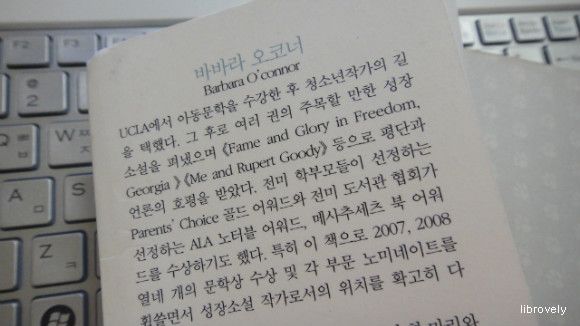 바바라 오코너
Barbara O'connor
UCLA에서 아동문학을 수강한 후 청소년작가의 길
을 택했다. 그 후로 여러 권의 주목할 만한 성장
소설을 펴냈으며 《Fame and Glory in Freedom,
Georgia 》《Me and Rupert Goody》 등으로 평단과
언론의 호평을 받았다. 전미 학부모들이 선정하는
Parents' Choice 골드 어워드와 전미 도서관 협회가
선정하는 ALA 노터블 어워드, 메사추세츠 북 어워
드를 수상하기도 했다. 특히 이 책으로 2007, 2008
열네 개의 문학상 수상 및 각 부문 노미네이트를
휩쓸면서 성장소설 작가로서의 위치를 확고히 다
librovely